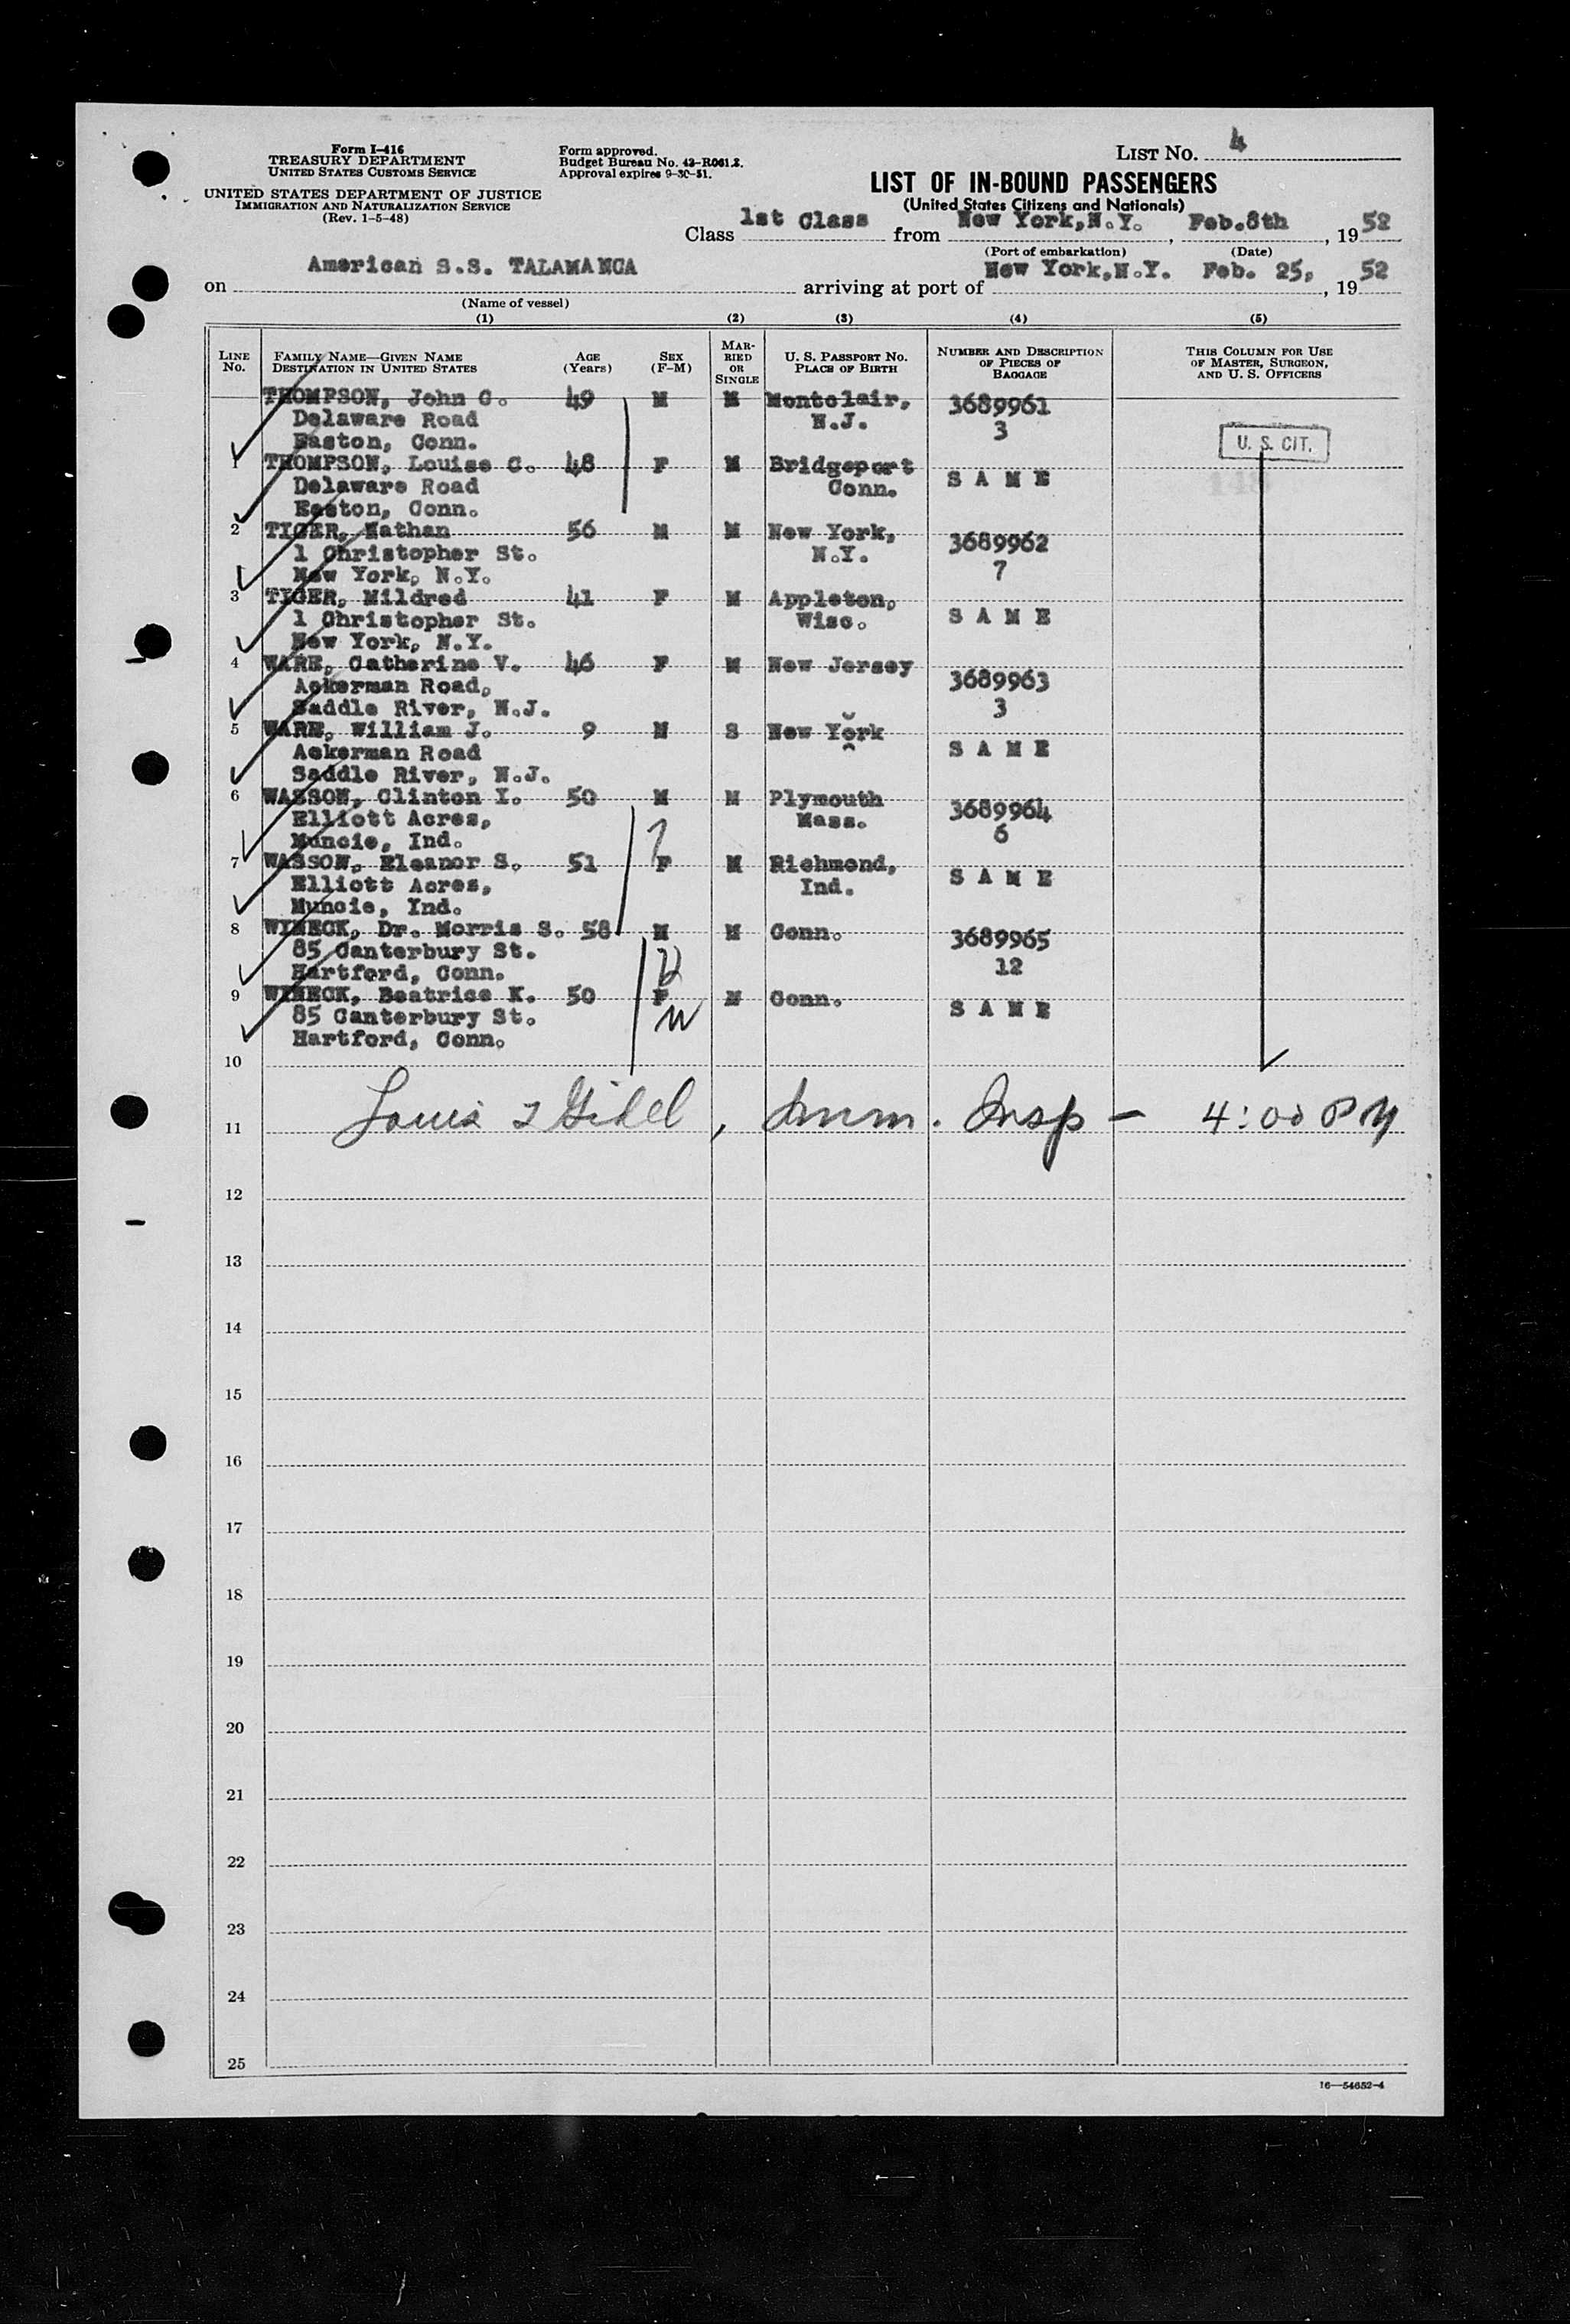 Form I-416
TREASURY DEPARTMENT
UNITED STATES CUSTOMS SERVICE
UNITED STATES DEPARTMENT OF JUSTICE
IMMIGRATION AND NATURALIZATION SERVICE
(Rev. 1-5-48)
Form approved.
Budget Bureau No. 43-R061.2.
Approval expires 9-30-51.
LIST NO. 4
LIST OF IN-BOUND PASSENGERS
(United States Citizens and Nationals)
Class 1st Class from New York,N.Y. , Feb.8th , 1952
(Port of embarkation) (Date)
on American S.S. TALAMANCA arriving at port of New York,N.Y. Feb. 25, , 1952
(Name of vessel)
(1) (2) (3) (4) (5)
LINE No. FAMILY NAME—GIVEN NAME DESTINATION IN UNITED STATES AGE (Years) SEX (F-M) MARRIED OR SINGLE U. S. PASSPORT NO. PLACE OF BIRTH NUMBER AND DESCRIPTION OF PIECES OF BAGGAGE THIS COLUMN FOR USE OF MASTER, SURGEON, AND U. S. OFFICERS
THOMPSON, John C. 49 M M Montclair, 3689961
Delaware Road N.J. 3
Easton, Conn. U. S. CIT.
1 THOMPSON, Louise C. 48 F M Bridgeport
Delaware Road Conn. SAME
Easton, Conn.
2 TIGER, Nathan 56 M M New York, 3689962
1 Christopher St. N.Y.
New York, N.Y. 7
3 TIGER, Mildred 41 F M Appleton,
1 Christopher St. Wisc. SAME
New York, N.Y.
4 WARE, Catherine V. 46 F M New Jersey
Ackerman Road, 3689963
Saddle River, N.J. 3
5 WARE, William J. 9 M S New York
Ackerman Road SAME
Saddle River, N.J.
6 WASSON, Clinton I. 50 M M Plymouth 3689964
Elliott Acres, Mass. 6
Muncie, Ind.
7 WASSON, Eleanor S. 51 F M Richmond,
Elliott Acres, Ind. SAME
Muncie, Ind.
8 WINECK, Dr. Morris S. 58 M M Conn. 3689965
85 Canterbury St.
Hartford, Conn. 12
9 WINECK, Beatrice K. 50 F M Conn.
85 Canterbury St. SAME
Hartford, Conn.
10
11 Louis , Imm. Insp — 4:00 PM
12
13
14
15
16
17
18
19
20
21
22
23
24
25
16—54652-4